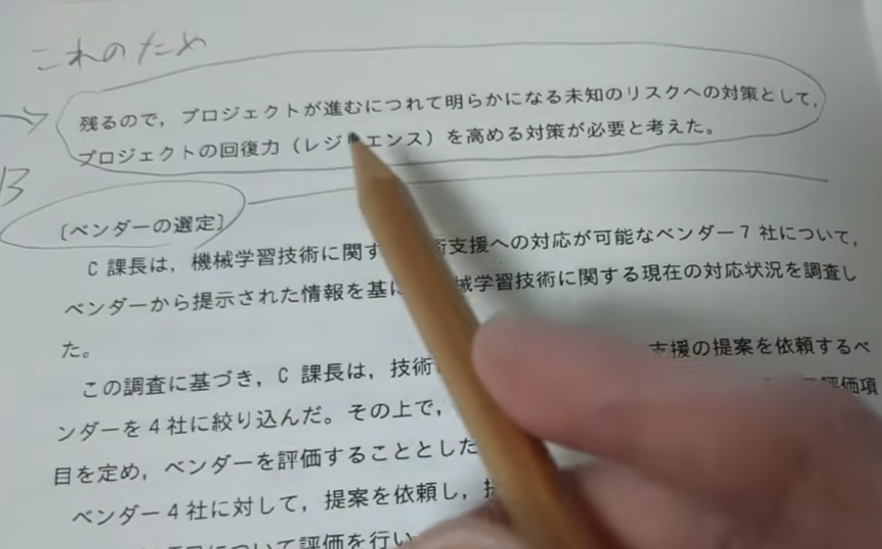 これのため
残るので，プロジェクトが進むにつれて明らかになる未知のリスクへの対策として，
プロジェクトの回復力（レジエンス）を高める対策が必要と考えた。
B
〔ベンダーの選定〕
C 課長は，機械学習技術に関す 支援への対応が可能なベンダー 7 社について，
ベンダーから提示された情報を基に 械学習技術に関する現在の対応状況を調査し
た。
この調査に基づき，C 課長は，技術 支援の提案を依頼するベ
ンダーを 4 社に絞り込んだ。その上で， 評価項
目を定め，ベンダーを評価することとした
ベンダー 4 社に対して，提案を依頼し，
について評価を行い